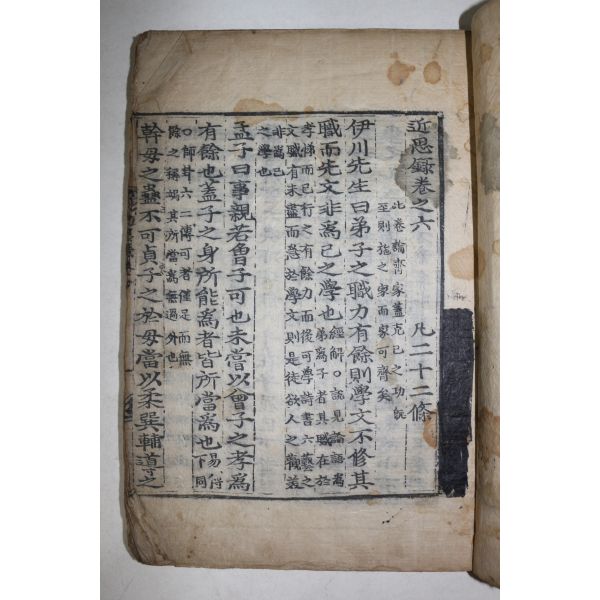 近思錄卷之六 凡二十二條
此卷論齊家蓋克己之功旣
至則施之家而家可齊矣
伊川先生曰弟子之職力有餘則學文不修其
職而先文非爲己之學也 經解○說見論語爲
弟爲子者其職在於
孝悌而已行之有餘力而後可學詩書六藝之
文職有未盡而急於學文則是徒欲人之觀美
非爲己
之學也
孟子曰事親若曾子可也未嘗以曾子之孝爲
有餘也蓋子之身所能爲者皆所當爲也 易傳
下同
○師卦六二傳可者僅足而無
餘之稱竭其所當爲無過外也
幹母之蠱不可貞子之於母當以柔巽輔導之